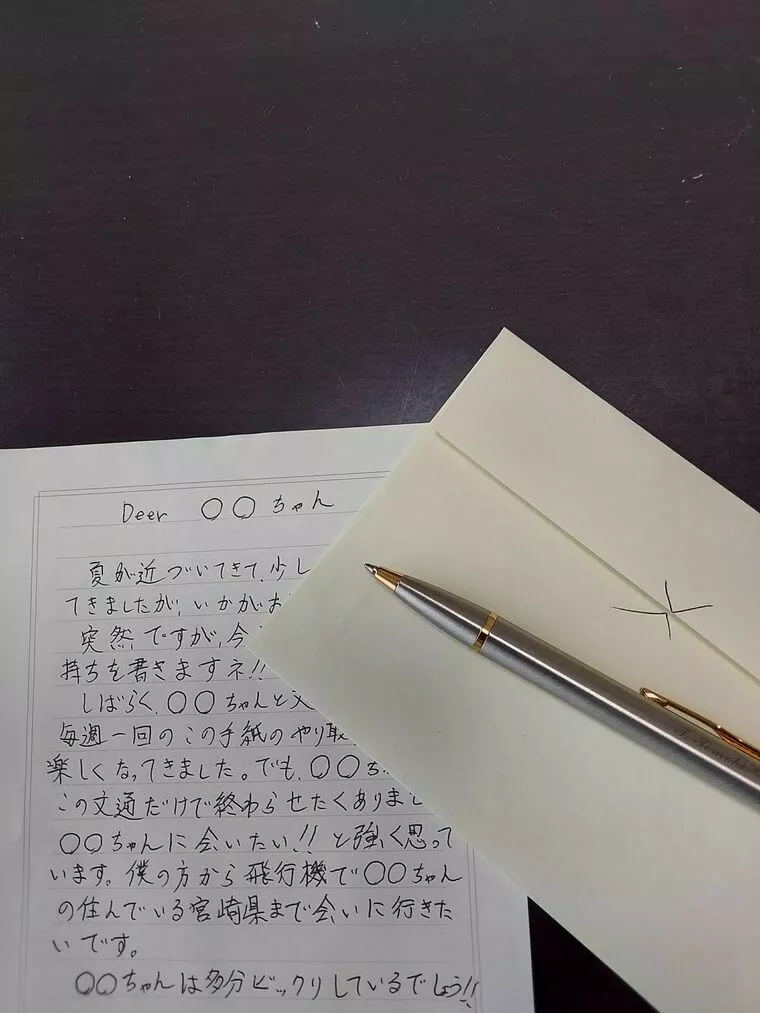 Deer ○○ちゃん
夏が近づいてきて、少し
てきましたが、いかがお
突然ですが、今
持ちを書きますネ!!
しばらく、○○ちゃんと文
毎週一回のこの手紙のやり取
楽しくなってきました。でも、○○ち
この文通だけで終わらせたくありまし
○○ちゃんに会いたい!!と強く思って
います。僕の方から飛行機で○○ちゃん
の住んでいる宮崎県まで会いに行きた
いです。
○○ちゃんは多分ビックリしているでしょう!!